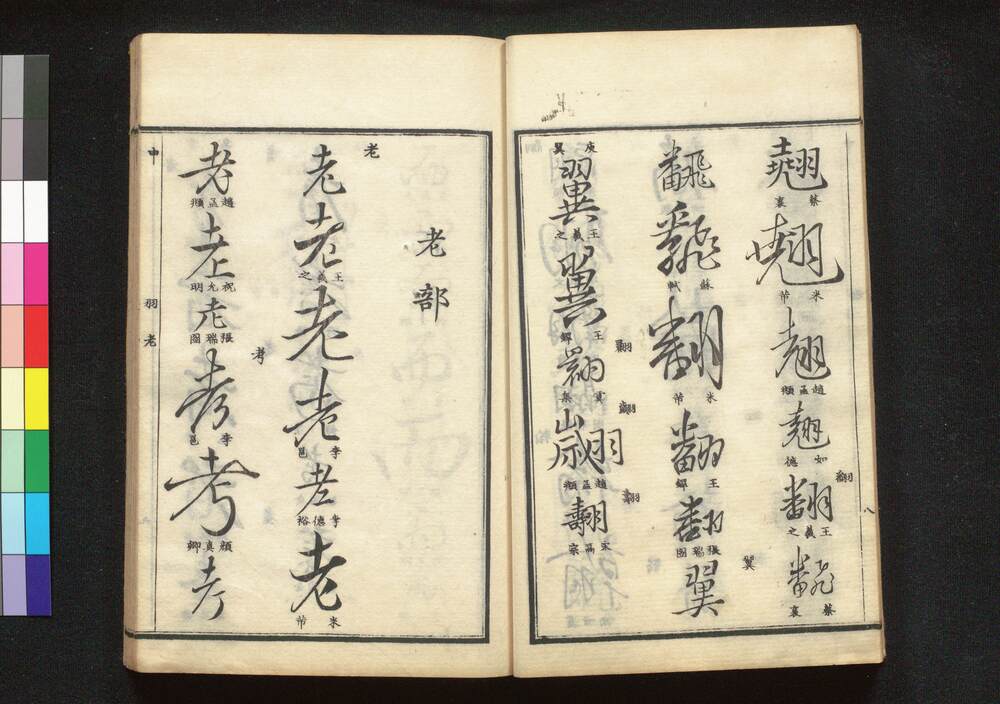 翹
蔡襄
翹
米芾
翹
趙孟頫
翹
如德
翻
翻
王羲之
翻
蔡襄
八
飜
飜
蘇軾
翻
米芾
翻
王鐸
翻
張瑞圖
翼
翼
庾翼
翼
王羲之
翼
王鐸
翾
趙孟頫
翿
宋高宗
老部
老
老
老
王羲之
老
老
李邕
老
李德裕
老
米芾
老
趙孟頫
老
祝允明
老
張瑞圖
考
考
李邕
考
顏真卿
考
中
羽老